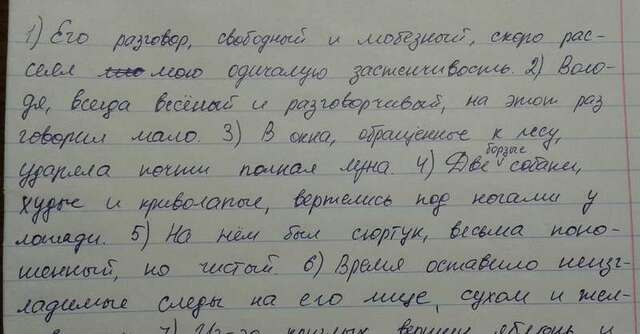 1) Его разговор, свободный и любезный, скоро рас-
сеял мою одичалую застенчивость. 2) Воло-
дя, всегда весёлый и разговорчивый, на этот раз
говорил мало. 3) В окна, обращённые к лесу,
ударяла почти полная луна. 4) Две борзые собаки,
худые и криволапые, вертелись под ногами у
лошади. 5) На нём был сюртук, весьма поно-
шенный, но чистый. 6) Время оставило неизг-
ладимые следы на его лице, сухом и жел-
7) Из-за круглых вершин яблонь и